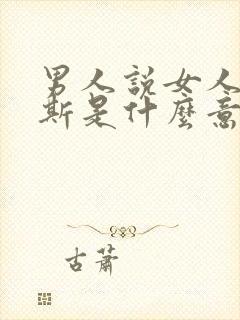 男人說女人
斯是什麼意
古蕭